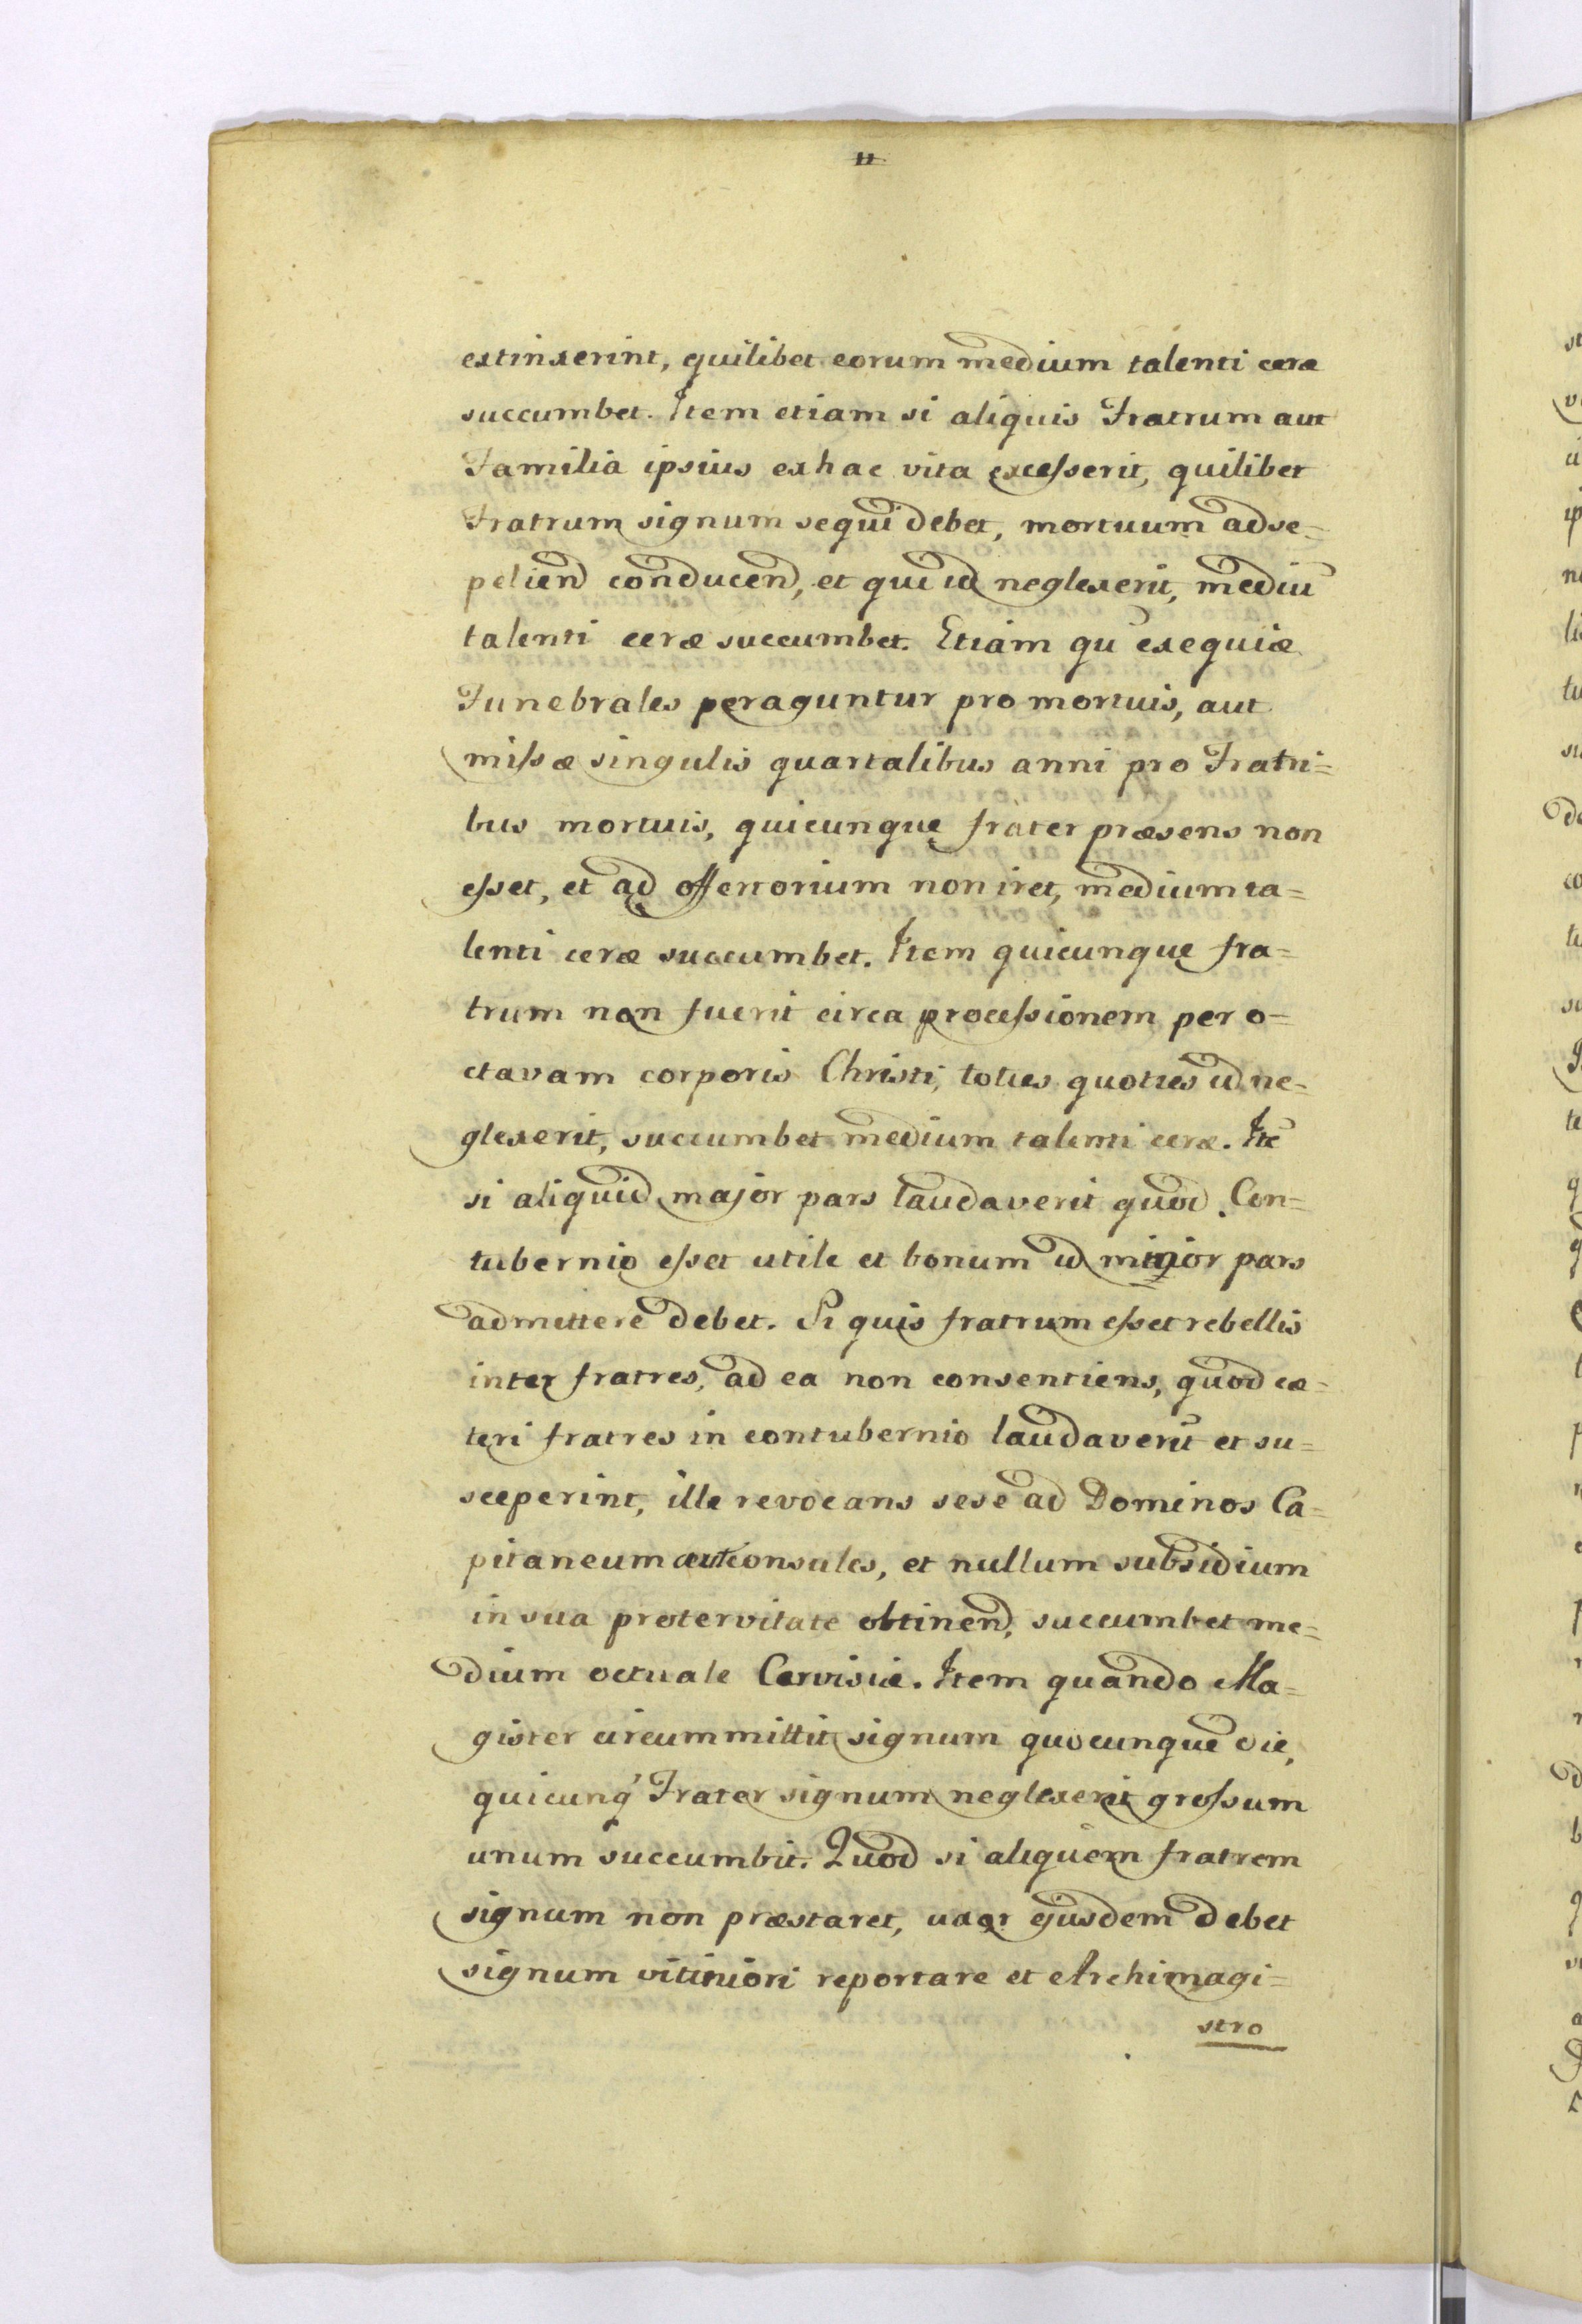 11
extinxerint, quilibet eorum medium talenti ceræ
succumbet. Item etiam si aliquis Fratrum aut
Familia ipsius ex hac vita excesserit, quilibet
Fratrum signum sequi debet, mortuum ad se=
peliend conducend, et qui id neglexerit, mediū
talenti ceræ succumbet. Etiam qū exequiæ
Funebrales peraguntur pro mortuis, aut
missæ singulis quartalibus anni pro Fratri=
bus mortuis, quicunque frater præsens non
esset, et ad offertorium non iret, medium ta=
lenti ceræ succumbet. Item quicunque fra=
trum non fuerit circa processionem per o=
ctavam corporis Christi, toties quoties id ne=
glexerit, succumbet medium talenti ceræ. Itē
si aliquid major pars laudaverit quod Con=
tubernio esset utile et bonum id minor pars
admittere debet. Si quis fratrum esset rebellis
inter fratres, ad ea non consentiens, quod cæ=
teri fratres in contubernio laudaverīt et su=
sceperint, ille revocans sese ad Dominos Ca=
pitaneum aut consules, et nullum subsidium
in sua protervitate obtinend, succumbet me=
dium octuale Cervisiæ. Item quando Ma=
gister circummittit signum quocunque die,
quicunq́ Frater signum neglexerit grossum
unum succumbit. Quod si aliquem fratrem
signum non præstaret, uxor ejusdem debet
signum vitiniori reportare et Archimagi=
stro